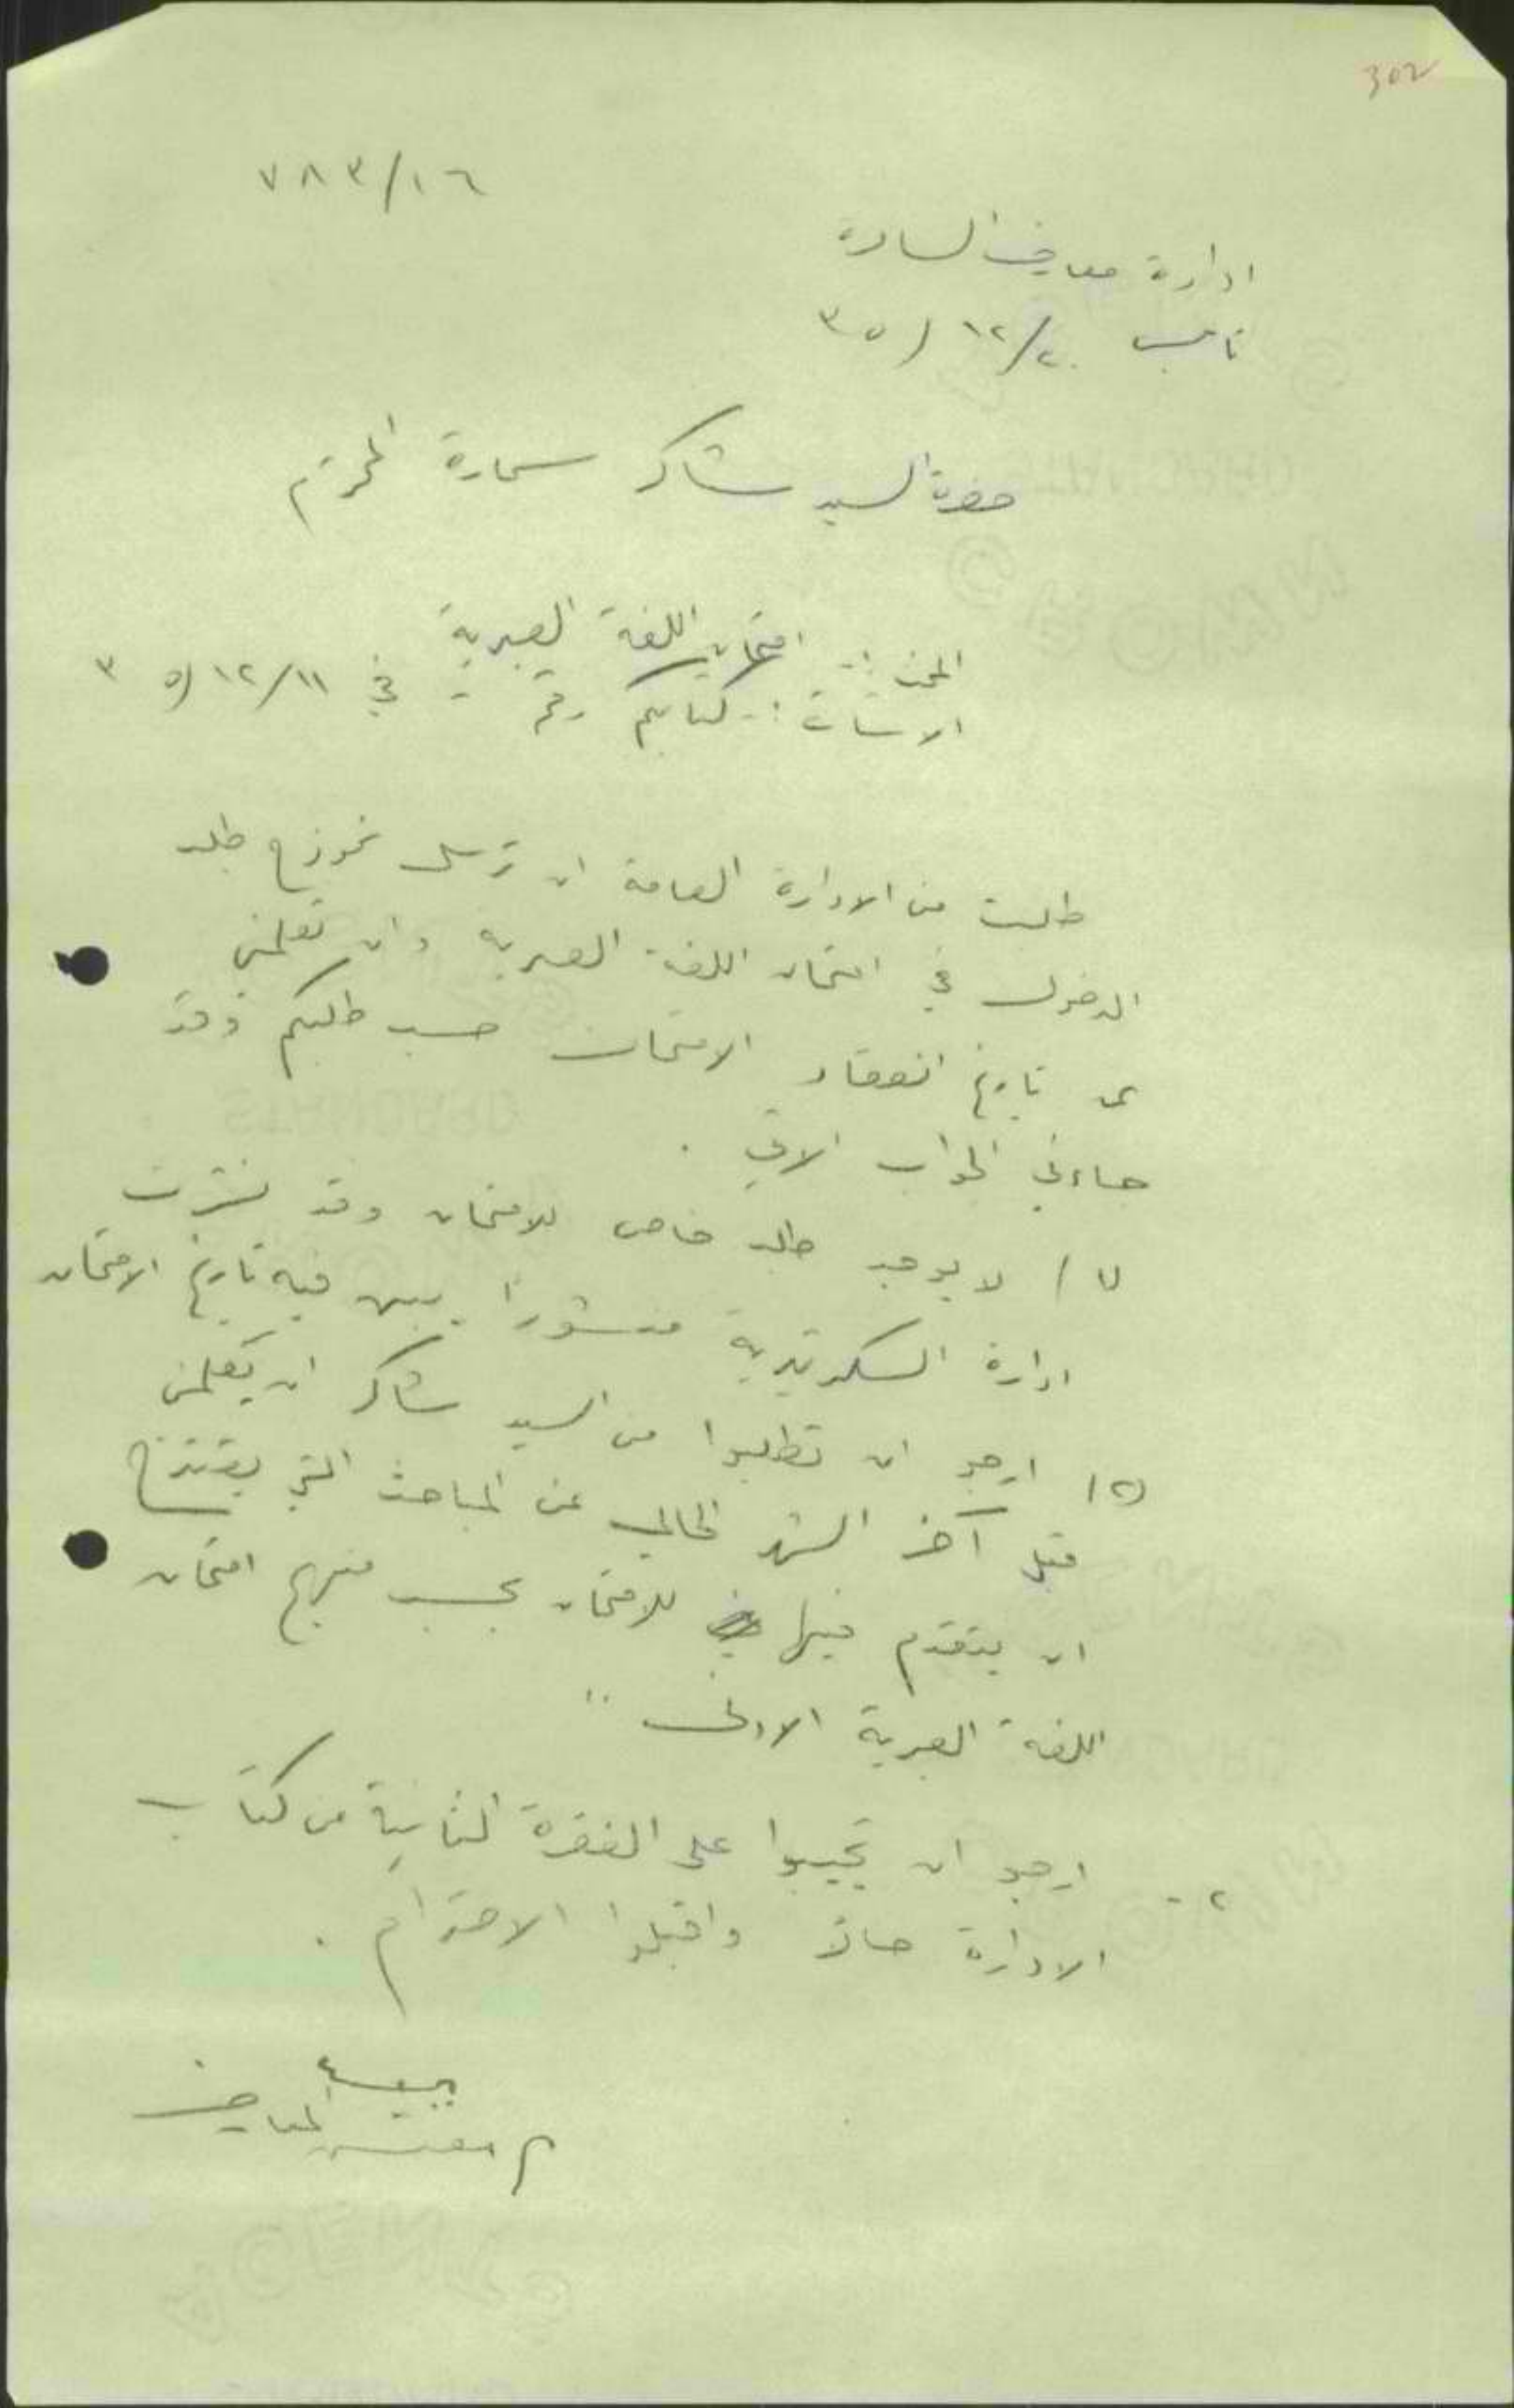 302
٧٨٣/١٦
ادارة معارف السامرة
نابلس ٢٠/١٢/٣٥
حضرة السيد شاكر سمارة المحترم
البحث :- امتحان اللغة العبرية
الاشارة :- كتابكم رقم - في ١١/١٢/٣٥
طلبت من الادارة العامة ان ترسل نموذج طلب
الدخول في امتحان اللغة العبرية وان تعلمني
عن تاريخ انعقاد الامتحان حسب طلبكم وقد
جاءني الجواب الاتي .
(١) لا يوجد طلب خاص للامتحان وقد نشرت
ادارة السكرتيرية منشوراً يبين فيه تاريخ الامتحان
(٢) ارجو ان تطلبوا من السيد شاكر ان يعلمني
قبل آخر الشهر الحالي عن المباحث التي يقترح
ان يتقدم فيها للامتحان بحسب منهج امتحان
اللغة العبرية الاولى "
٢- ارجو ان تجيبوا على الفقرة الثانية من كتاب
الادارة حالاً واقبلوا الاحترام .
م مفتش المعارف